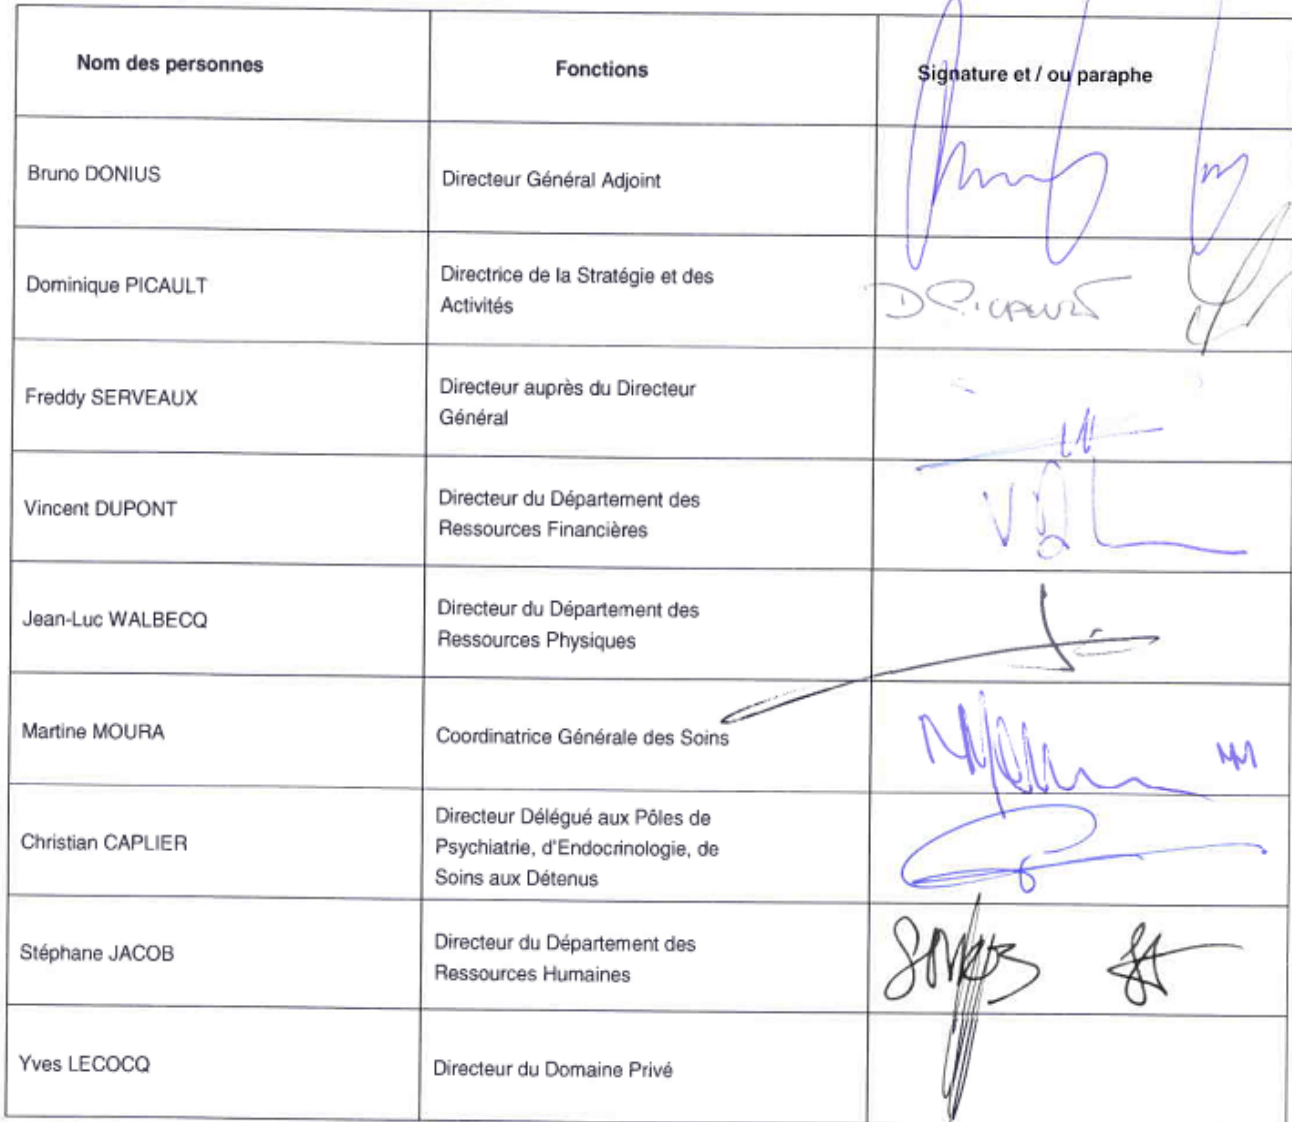 Nom des personnes
Fonctions
Signature et / ou paraphe
Bruno DONIUS
Directeur Général Adjoint
Dominique PICAULT
Directrice de la Stratégie et des
Activités
D PICAULT
Freddy SERVEAUX
Directeur auprès du Directeur
Général
Vincent DUPONT
Directeur du Département des
Ressources Financières
Jean-Luc WALBECQ
Directeur du Département des
Ressources Physiques
Martine MOURA
Coordinatrice Générale des Soins
MM
Christian CAPLIER
Directeur Délégué aux Pôles de
Psychiatrie, d'Endocrinologie, de
Soins aux Détenus
Stéphane JACOB
Directeur du Département des
Ressources Humaines
Yves LECOCQ
Directeur du Domaine Privé